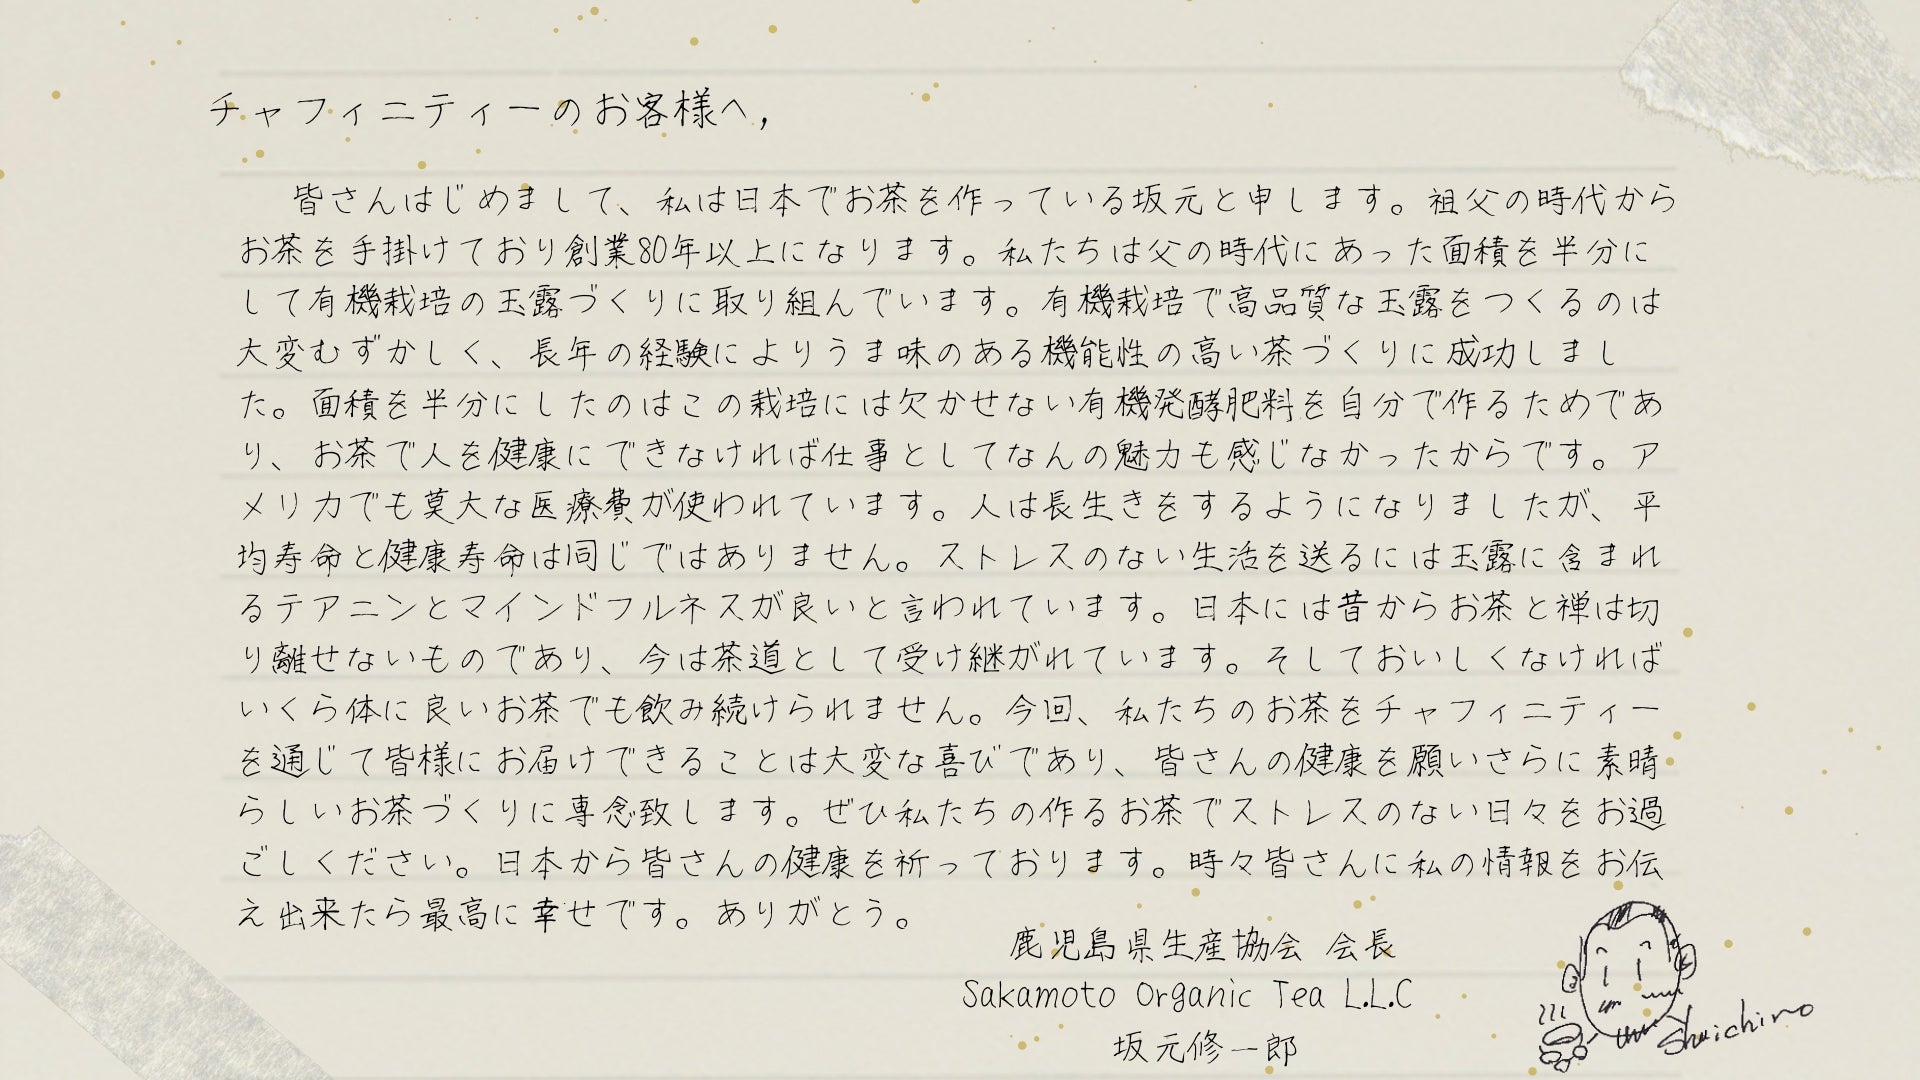 チャフィニティーのお客様へ,
皆さんはじめまして、私は日本でお茶を作っている坂元と申します。祖父の時代から
お茶を手掛けており創業80年以上になります。私たちは父の時代にあった面積を半分に
して有機栽培の玉露づくりに取り組んでいます。有機栽培で高品質な玉露をつくるのは
大変むずかしく、長年の経験によりうま味のある機能性の高い茶づくりに成功しまし
た。面積を半分にしたのはこの栽培には欠かせない有機発酵肥料を自分で作るためであ
り、お茶で人を健康にできなければ仕事としてなんの魅力も感じなかったからです。ア
メリカでも莫大な医療費が使われています。人は長生きをするようになりましたが、平
均寿命と健康寿命は同じではありません。ストレスのない生活を送るには玉露に含まれ
るテアニンとマインドフルネスが良いと言われています。日本には昔からお茶と禅は切
り離せないものであり、今は茶道として受け継がれています。そしておいしくなければ
いくら体に良いお茶でも飲み続けられません。今回、私たちのお茶をチャフィニティー
を通じて皆様にお届けできることは大変な喜びであり、皆さんの健康を願いさらに素晴
らしいお茶づくりに専念致します。ぜひ私たちの作るお茶でストレスのない日々をお過
ごしください。日本から皆さんの健康を祈っております。時々皆さんに私の情報をお伝
え出来たら最高に幸せです。ありがとう。
鹿児島県生産協会 会長
Sakamoto Organic Tea L.L.C
坂元修一郎
Shuichiro